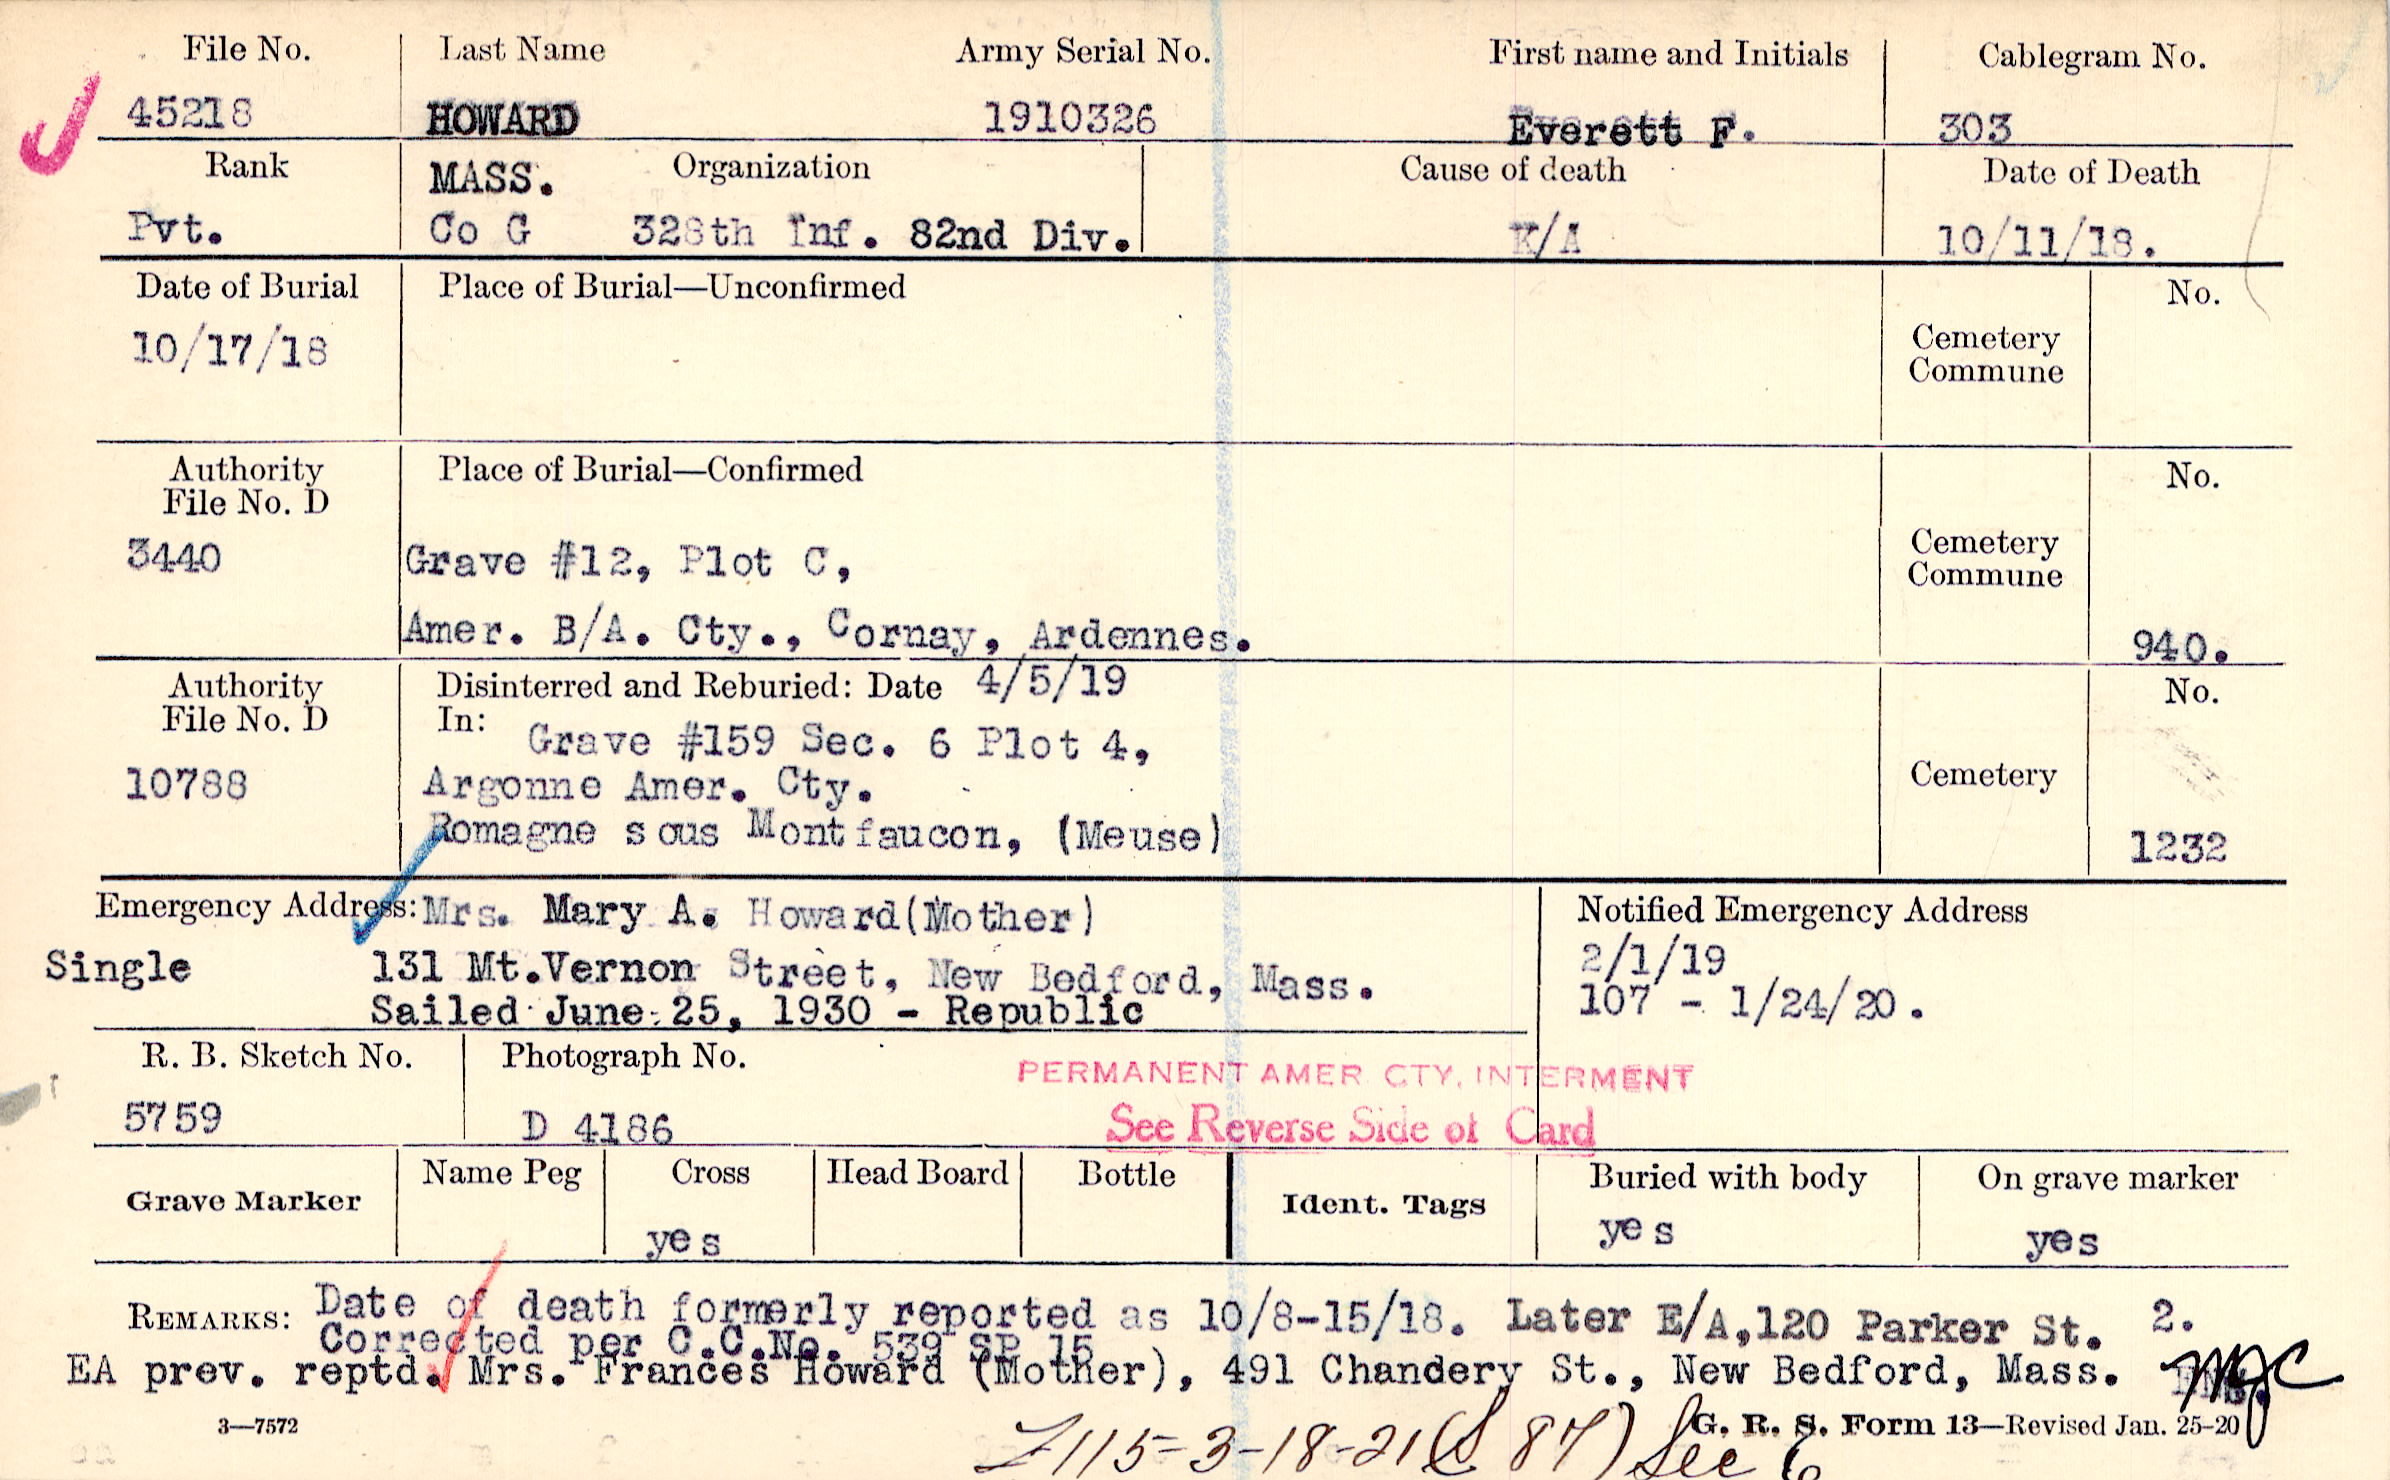 File No. Last Name Army Serial No. First name and Initials Cablegram No.
45218 HOWARD 1910326 Everett F. 303
Rank MASS. Organization Cause of death Date of Death
Pvt. Co G 328th Inf. 82nd Div. K/A 10/11/18.
Date of Burial Place of Burial—Unconfirmed No.
10/17/18 Cemetery
Commune
Authority Place of Burial—Confirmed No.
File No. D
3440 Grave #12, Plot C, Cemetery
Commune
Amer. B/A. Cty., Cornay, Ardennes. 940.
Authority Disinterred and Reburied: Date 4/5/19 No.
File No. D In: Grave #159 Sec. 6 Plot 4,
10788 Argonne Amer. Cty. Cemetery
Romagne sous Montfaucon, (Meuse) 1232
Emergency Address: Mrs. Mary A. Howard(Mother) Notified Emergency Address
Single 131 Mt.Vernon Street, New Bedford, Mass. 2/1/19
Sailed June 25, 1930 - Republic 107 - 1/24/20.
R. B. Sketch No. Photograph No. PERMANENT AMER CTY. INTERMENT
5759 D 4186 See Reverse Side of Card
Grave Marker Name Peg Cross Head Board Bottle Ident. Tags Buried with body On grave marker
yes yes yes
REMARKS: Date of death formerly reported as 10/8-15/18. Later E/A,120 Parker St. 2.
Corrected per C.C.No. 539 SP 15
EA prev. reptd. Mrs. Frances Howard (Mother), 491 Chandery St., New Bedford, Mass. MJC
3—7572 G. R. S. Form 13—Revised Jan. 25-20
115-3-18-21 (S 87) See